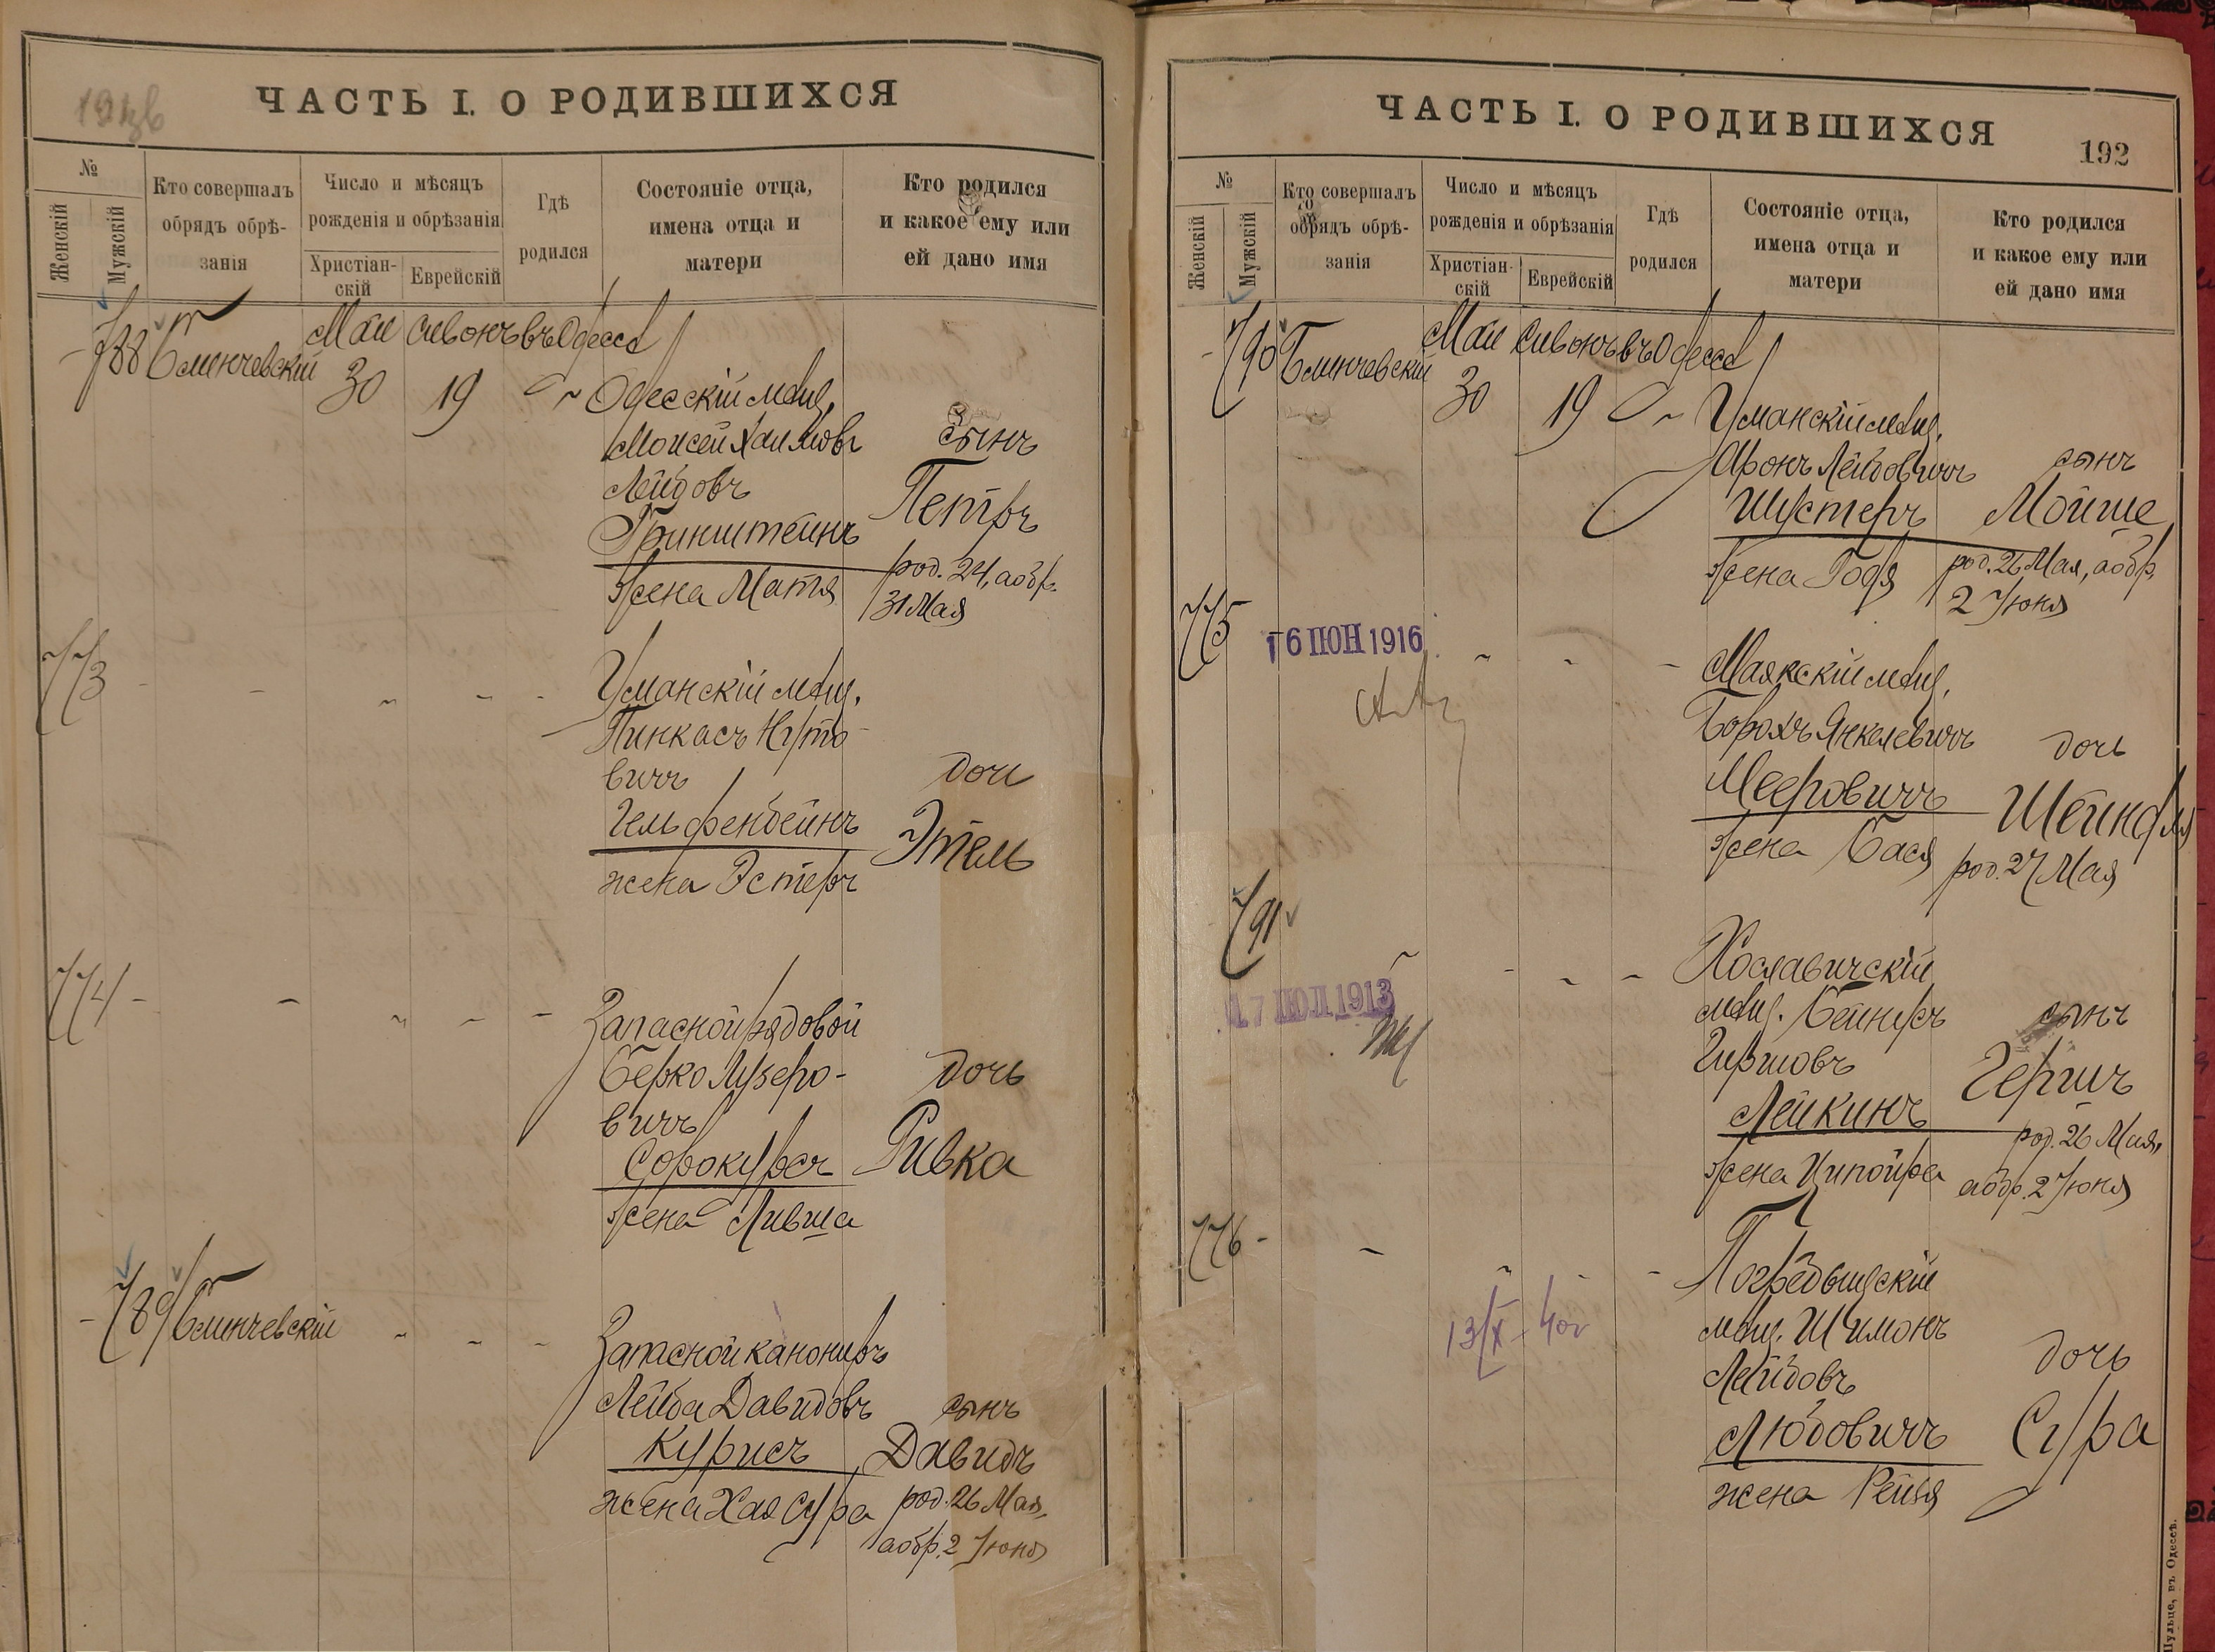 ЧАСТЬ I. О РОДИВШИХСЯ
№
Женскій
Мужскій
Кто совершалъ
обрядъ обрѣ-
занія
Число и мѣсяцъ
рожденія и обрѣзанія
Христіан-
скій
Еврейскій
Гдѣ
родился
Состояніе отца,
имена отца и
матери
Кто родился
и какое ему или
ей дано имя
788 Блинчевскій Май Сивонъ въ Одессѣ
30 19
Одесскій мѣщ.
Моисей Хаимовъ
Лейбовъ
Гринштейнъ
жена Матя
сынъ
Петръ
род. 24, а обр.
31 Мая
773
Уманскій мѣщ.
Пинкасъ Нуто-
вичъ
Гельфенбейнъ
жена Эстеръ
дочь
Этель
774
Запасной рядовой
Берко Лузеро-
вичъ
Сорокуръ
жена Лившa
дочь
Ривка
789 Блинчевскій
Запасной канониръ
Лейба Давидовъ
Курисъ
жена Хая Сура
сынъ
Давидъ
род. 26 Мая,
а обр. 2 Юня
ЧАСТЬ I. О РОДИВШИХСЯ
192
№
Женскій
Мужскій
Кто совершалъ
обрядъ обрѣ-
занія
Число и мѣсяцъ
рожденія и обрѣзанія
Христіан-
скій
Еврейскій
Гдѣ
родился
Состояніе отца,
имена отца и
матери
Кто родился
и какое ему или
ей дано имя
790 Блинчевскій Май Сивонъ въ Одессѣ
30 19
Уманскій мѣщ.
Аронъ Лейбовичъ
Шустеръ
жена Годя
сынъ
Мойше
род. 26 Мая, а обр.
2 Юня
775
16 ІЮН 1916
Маякскій мѣщ.
Борохъ Янкелевичъ
Мееровичъ
жена Бася
дочь
Шейндля
род. 27 Мая
791
17 ІЮЛ 1913
Хославичскій
мѣщ. Бейнусъ
Гиршовъ
Лейкинъ
жена Ципойра
сынъ
Гершъ
род. 26 Мая,
а обр. 2 Юня
776
13/X - 40г
Погребыщскій
мѣщ. Шимонъ
Лейбовъ
Любовичъ
жена Рейзя
дочь
Сура
въ Одессѣ.